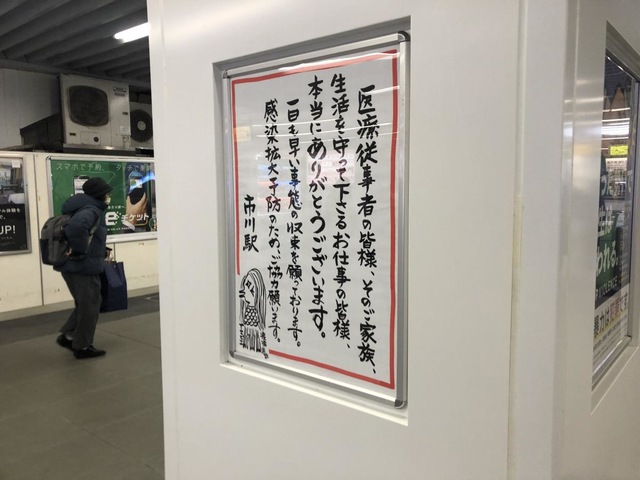 医療従事者の皆様、そのご家族、
生活を守って下さるお仕事の皆様、
本当にありがとうございます。
一日も早い事態の収束を願っております。
感染拡大予防のため、ご協力願います。
市川駅
スマホで予約
チケット
UP!